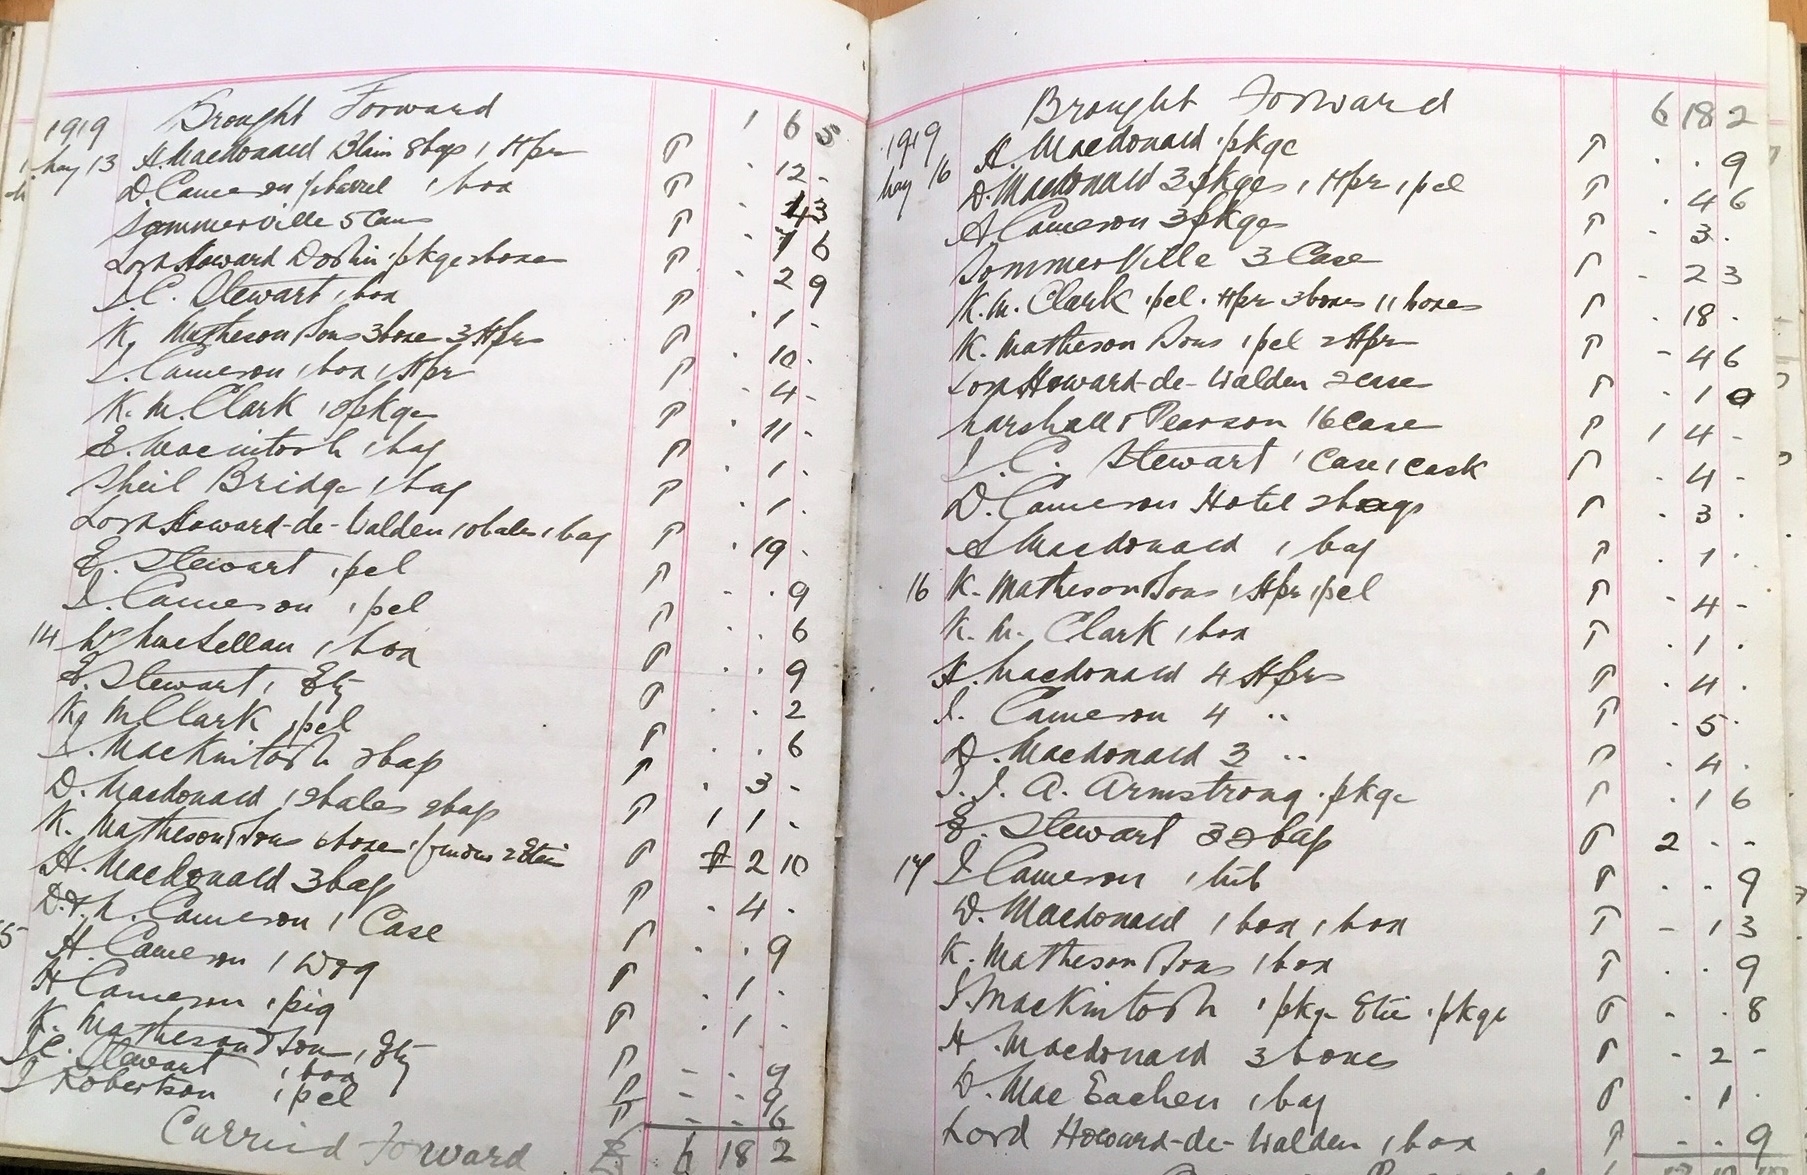 Brought Forward 1 6 5
1919
May 13 A. Macdonald Blain 8bgs 1 Hpr P . 12 -
D. Cameron 1 barrel 1 box P
Sommerville 5 Cans P
Lord Howard Doblin 1 pkge 2 boxes P . 2 9
I. C. Stewart 1 box P . 1 -
K. Matheson Sons 3 boxe 3 Hprs P . 10 -
I. Cameron 1 box 1 Hpr P . 4 -
K. M. Clark 10 pkge P . 11 -
E. Macintosh 1 bag P . 1 .
Sheil Bridge 1 bag P . 1 .
Lord Howard-de-Walden 10 bales 1 bag P . 19 .
E. Stewart 1 pel P . . 9
I. Cameron 1 pel P . . 6
14 MacLellan 1 box P . . 9
E. Stewart 1 Ety P . . 2
K. M Clark 1 pel P . . 6
I. MacKintosh 2 bags P . 3 -
D. Macdonald 12 bales 2 bags P 1 1 -
K. Matheson Sons 6 boxe 2 Eties P 2 10
A. Macdonald 3 bags P . 4 .
D. & A. Cameron 1 Case P . . 9
15 H. Cameron 1 Dog P . 1 .
H Cameron 1 pig P . 1 .
K. Matheson & Son 1 Ety P - - 9
J. C. Stewart 1 box P - - 9
J Robertson 1 pel P - - 6
Carried Forward £ 6 18 2
Brought Forward 6 18 2
1919
May 16 A. Macdonald 1 pkge P . . 9
D. Macdonald 3 pkges 1 Hpr 1 pel P . 4 6
A Cameron 3 pkges P - 3 .
Sommerville 3 Case P - 2 3
K. M. Clark 1 pel 1 Hpr 3 boxes 11 boxes P . 18 .
K. Matheson Sons 1 pel 2 Hpr P - 4 6
Lord Howard-de-Walden 2 case P - 1 0
Marshall & Pearson 16 Case P 1 4 -
I. C. Stewart 1 Case 1 cask P . 4 -
D. Cameron Hotel 2 bags P . 3 .
A Macdonald 1 bag P . 1 .
16 K. Matheson Sons 1 Hpr 1 pel P . 4 -
K. M. Clark 1 box P . 1 .
A. Macdonald 4 Hprs P . 4 .
I. Cameron 4 " P . 5 .
D. Macdonald 3 " P . 4 .
I. J. A. Armstrong 1 pkge P . 1 6
E. Stewart 32 bags P 2 - -
17 I Cameron 1 tub P . . 9
D. Macdonald 1 box 1 box P - 1 3
K. Matheson Sons 1 box P . . 9
I. MacKintosh 1 pkge Etie 1 pkge P - . 8
A. Macdonald 3 boxes P - 2 -
D. Mac Eachen 1 bag P . 1 .
Lord Howard-de-Walden 1 box P . . 9